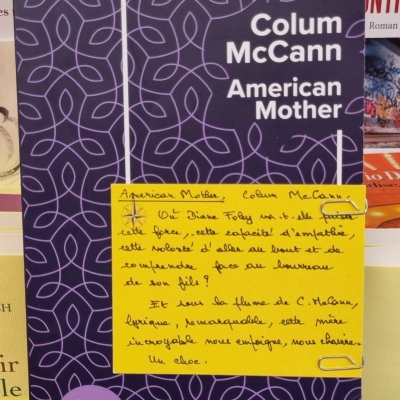 Colum
McCann
American
Mother
American Mother, Colum McCann.
Où Diane Foley va-t-elle puiser
cette force, cette capacité d'empathie,
cette volonté d'aller au bout et de
comprendre face au bourreau
de son fils ?
Et sous la plume de C. McCann,
lyrique, remarquable, cette mère
incroyable nous empoigne, nous chavire.
Un choc.
Roman